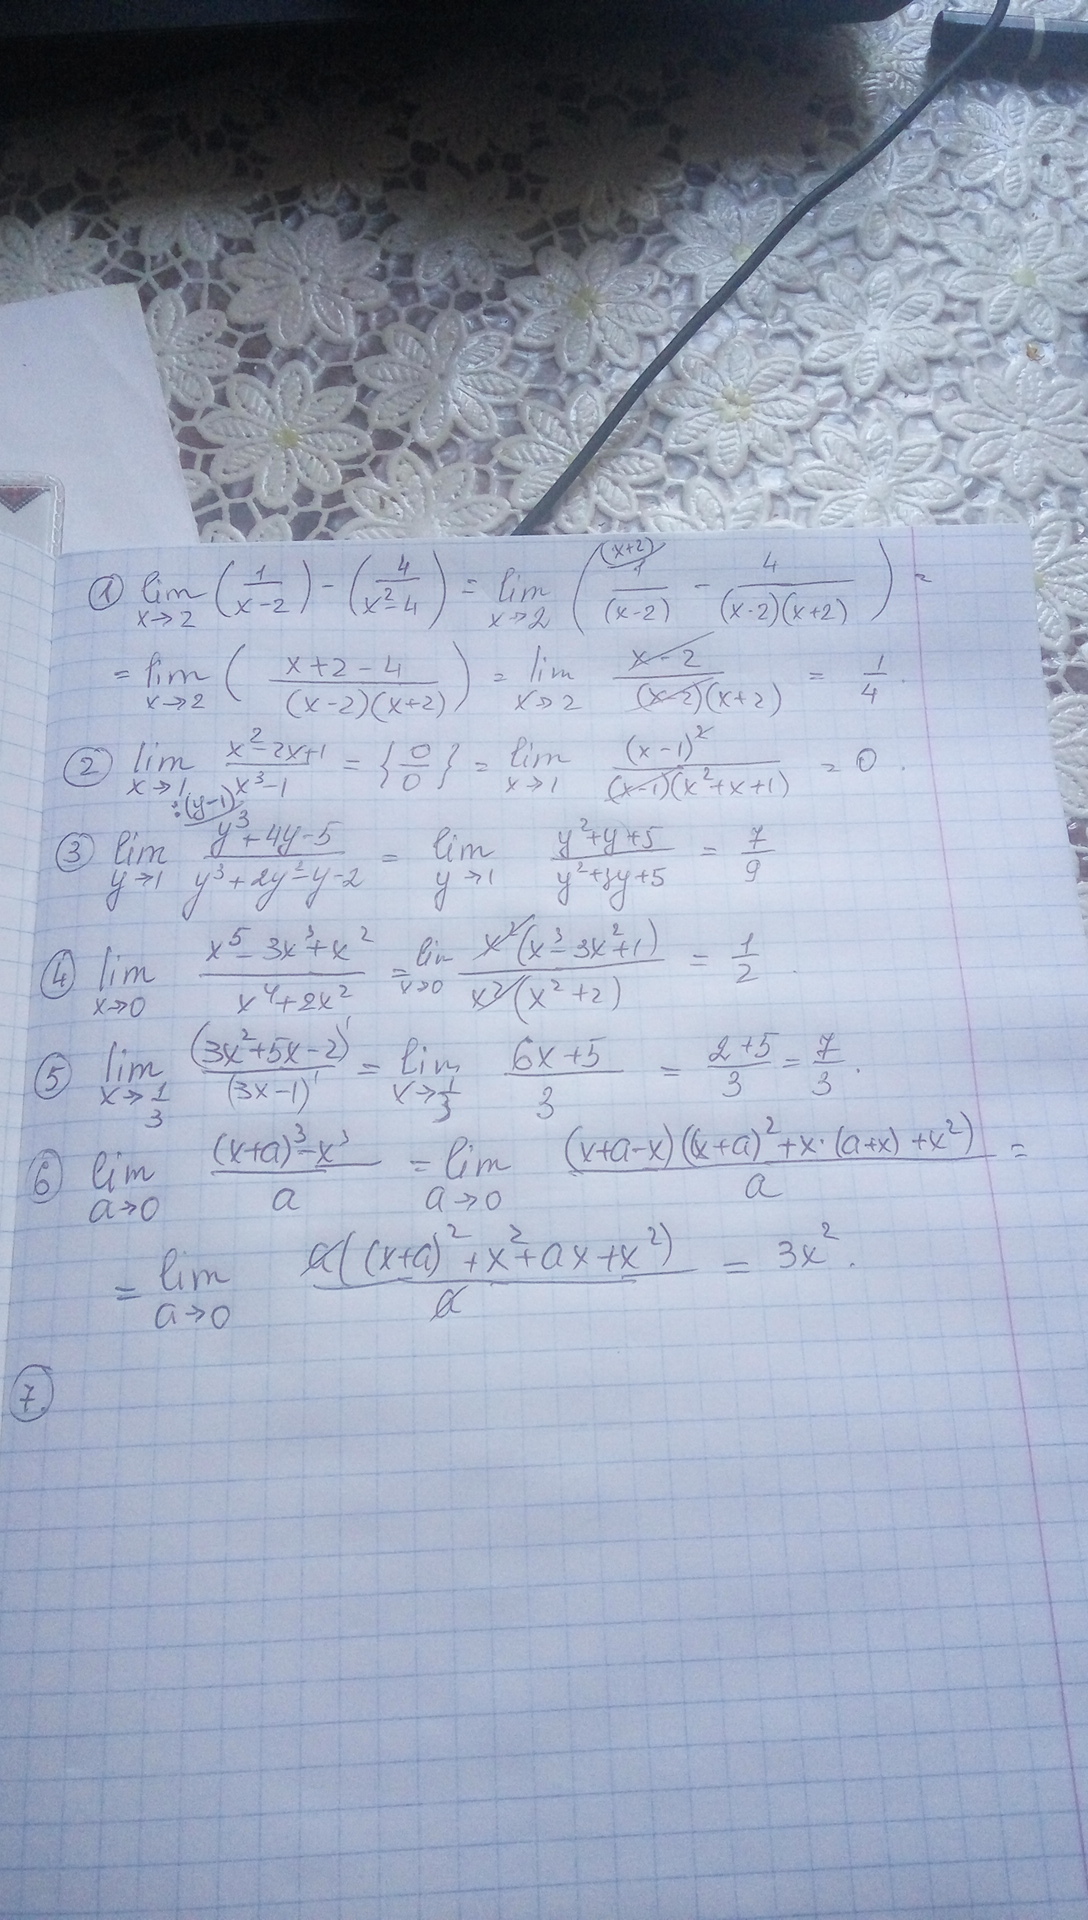 ① lim x→2 (1/(x-2)) - (4/(x²-4)) = lim x→2 ((x+2) 1/(x-2) - 4/((x-2)(x+2))) =
= lim x→2 ((x+2-4)/((x-2)(x+2))) = lim x→2 (x-2)/((x-2)(x+2)) = 1/4.
② lim x→1 (x²-2x+1)/(x³-1) = {0/0} = lim x→1 (x-1)²/((x-1)(x²+x+1)) = 0.
:(y-1)
③ lim y→1 (y³+4y-5)/(y³+2y²-y-2) = lim y→1 (y²+y+5)/(y²+3y+5) = 7/9
④ lim x→0 (x⁵-3x³+x²)/(x⁴+2x²) = lim x→0 x²(x³-3x²+1)/(x²(x²+2)) = 1/2.
⑤ lim x→1/3 (3x²+5x-2)'/(3x-1)' = lim x→1/3 (6x+5)/3 = (2+5)/3 = 7/3.
⑥ lim a→0 ((x+a)³-x³)/a = lim a→0 (x+a-x)((x+a)²+x·(a+x)+x²)/a =
= lim a→0 a((x+a)²+x²+ax+x²)/a = 3x².
⑦.